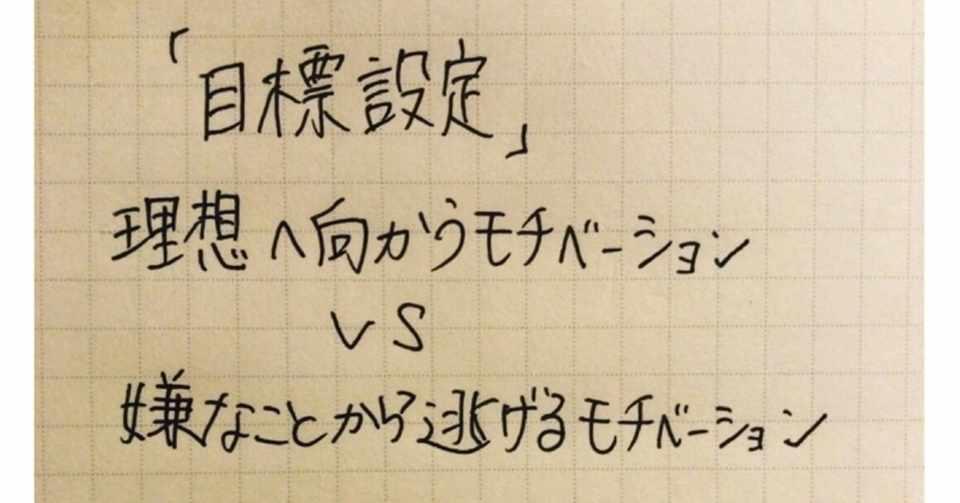 「目標設定」
理想へ向かうモチベーション
VS
嫌なことから逃げるモチベーション